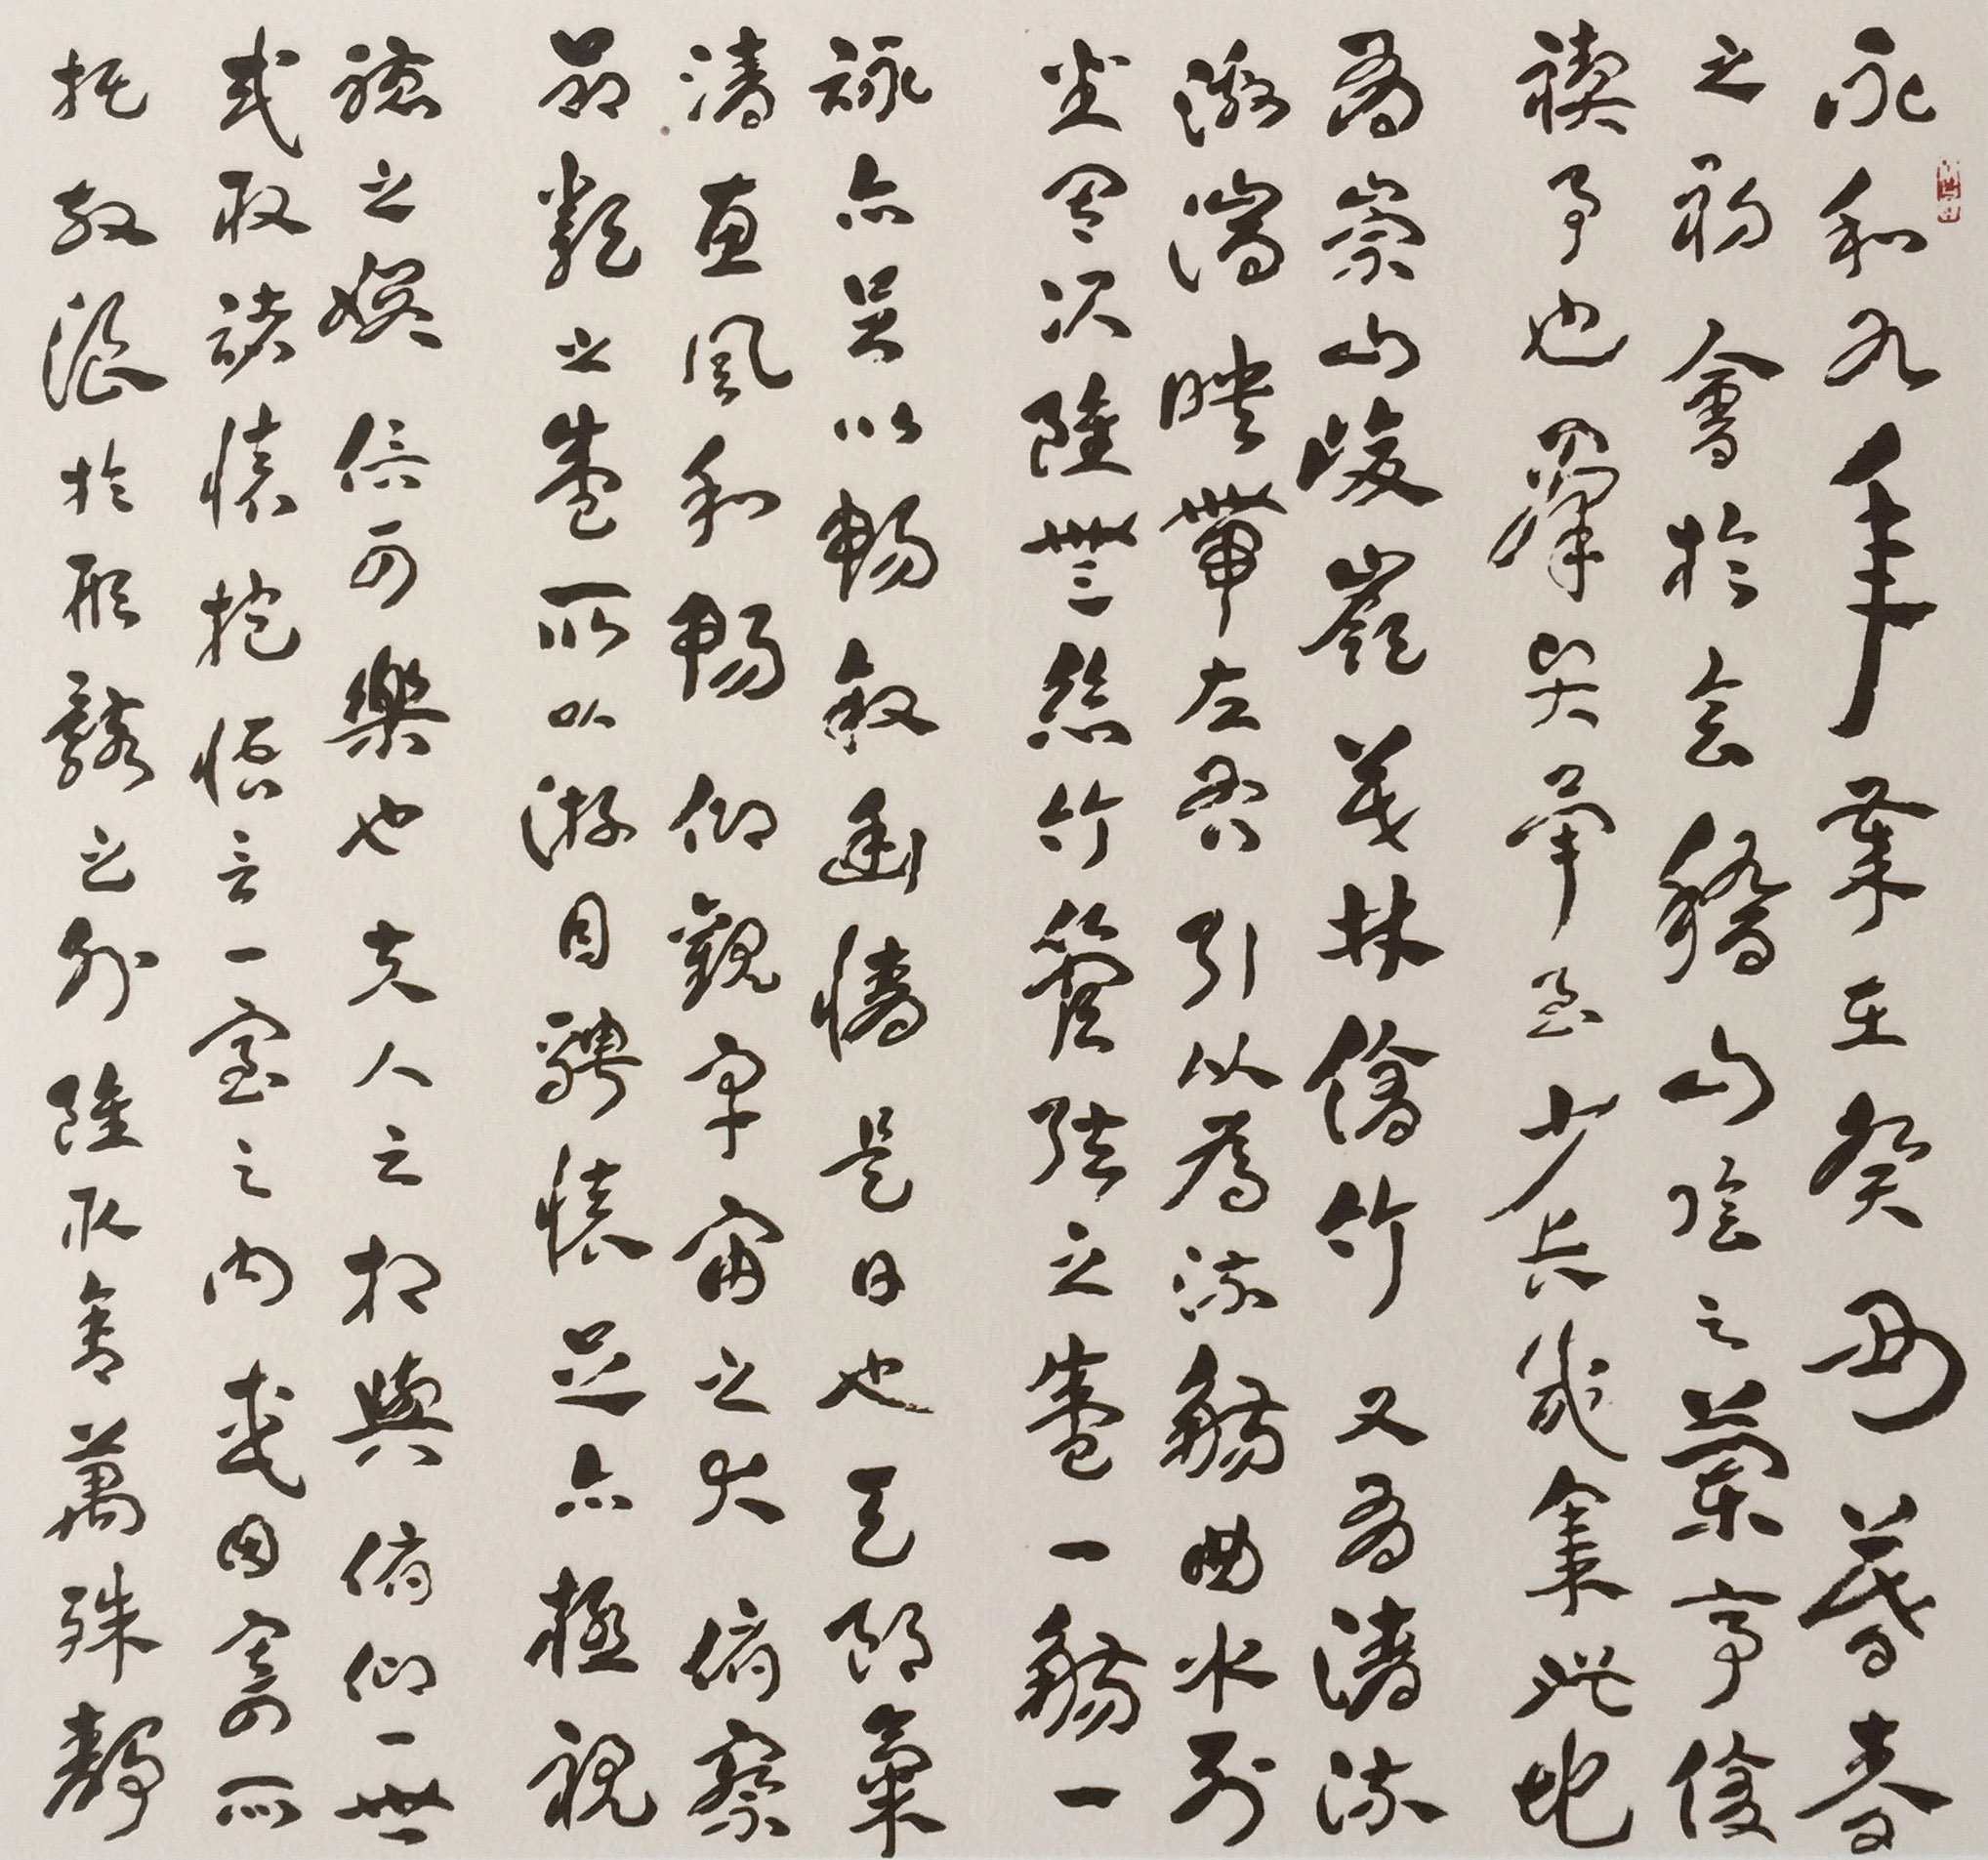 永和九年歲在癸丑暮春
之初會於會稽山陰之蘭亭脩
禊事也羣賢畢至少長咸集此地
有崇山峻嶺茂林脩竹又有清流
激湍映帶左右引以為流觴曲水列
坐其次雖無絲竹管弦之盛一觴一
詠亦足以暢敘幽情是日也天朗氣
清惠風和暢仰觀宇宙之大俯察
品類之盛所以游目騁懷足亦極視
聽之娛信可樂也夫人之相與俯仰一世
或取諸懷抱悟言一室之內或因寄所
托放浪於形骸之外雖取舍萬殊靜